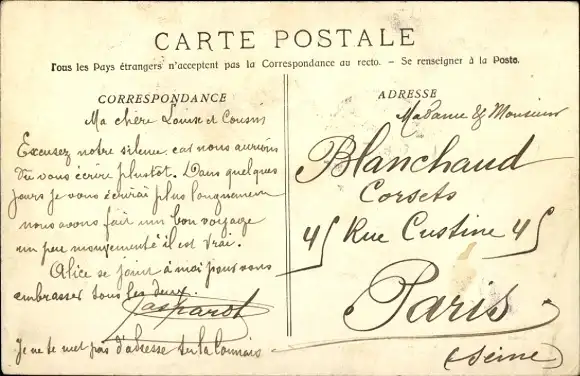 CARTE POSTALE
Tous les Pays étrangers n'acceptent pas la Correspondance au recto. – Se renseigner à la Poste.
CORRESPONDANCE
Ma chère Louise et Cousins
Excusez notre silence car nous aurions
du vous écrire plustôt. Dans quelques
jours je vous écrirai plus longuement
nous avons fait un bon voyage
un peu mouvementé il est vrai.
Alice se joint à moi pour vous
embrasser tous les deux.
Gasparot
Je ne te met pas d'adresse tu la connais
ADRESSE
Madame & Monsieur
Blanchaud
Corsets
45 Rue Custine 45
Paris
(Seine)